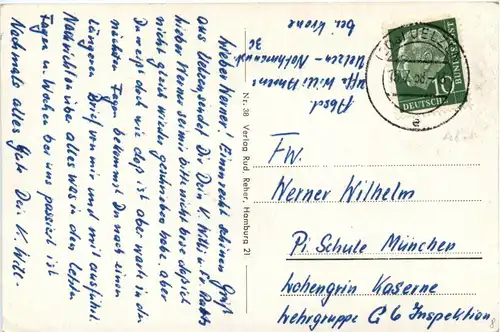 Lieber Werner! Einen recht schönen Gruß
aus Uelzen sendet Dir Dein K. Willi u. Co.
Lieber Werner sei mir bitte nicht böse daß ich
nicht gleich wieder geschrieben habe, aber
Du weißt doch wie das ist aber warte in den
nächsten Tagen bekommst Du noch einen
längeren Brief von mir und mit ausführl.
Nachrichten über alles was in den letzten
Tagen u. Wochen bei uns passiert ist
Nochmals alles Gute Dein K. Willi-
Nr. 38 Verlag Rud. Reher, Hamburg 21
Absd.
Uffz Willi
Uelzen-
3c
bei Krone
UELZEN
e
10
DEUTSCHE
BUNDESPOST
FW.
Werner Wilhelm
Pi Schule München
Lohengrin Kaserne
Lehrgruppe C 6 Inspektion